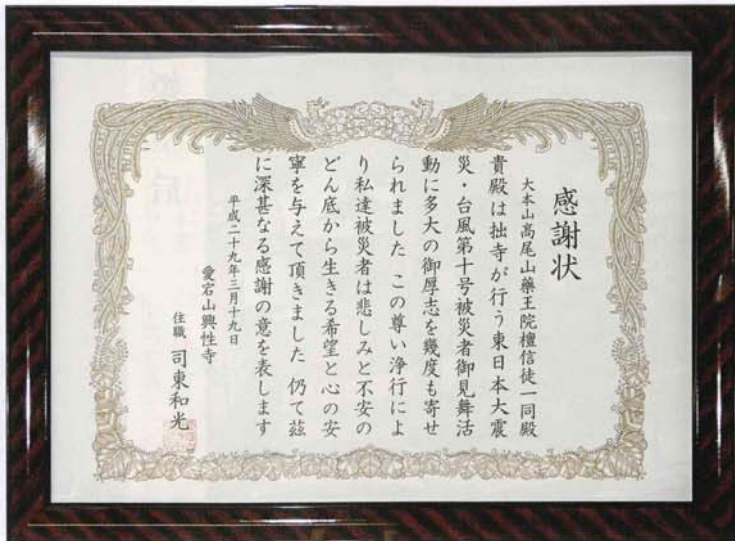 感謝状
大本山高尾山藥王院檀信徒一同殿
貴殿は拙寺が行う東日本大震
災・台風第十号被災者御見舞活
動に多大の御厚志を幾度も寄せ
られました この尊い浄行によ
り私達被災者は悲しみと不安の
どん底から生きる希望と心の安
寧を与えて頂きました 仍て茲
に深甚なる感謝の意を表します
平成二十九年三月十九日
愛宕山興性寺
住職 司東和光